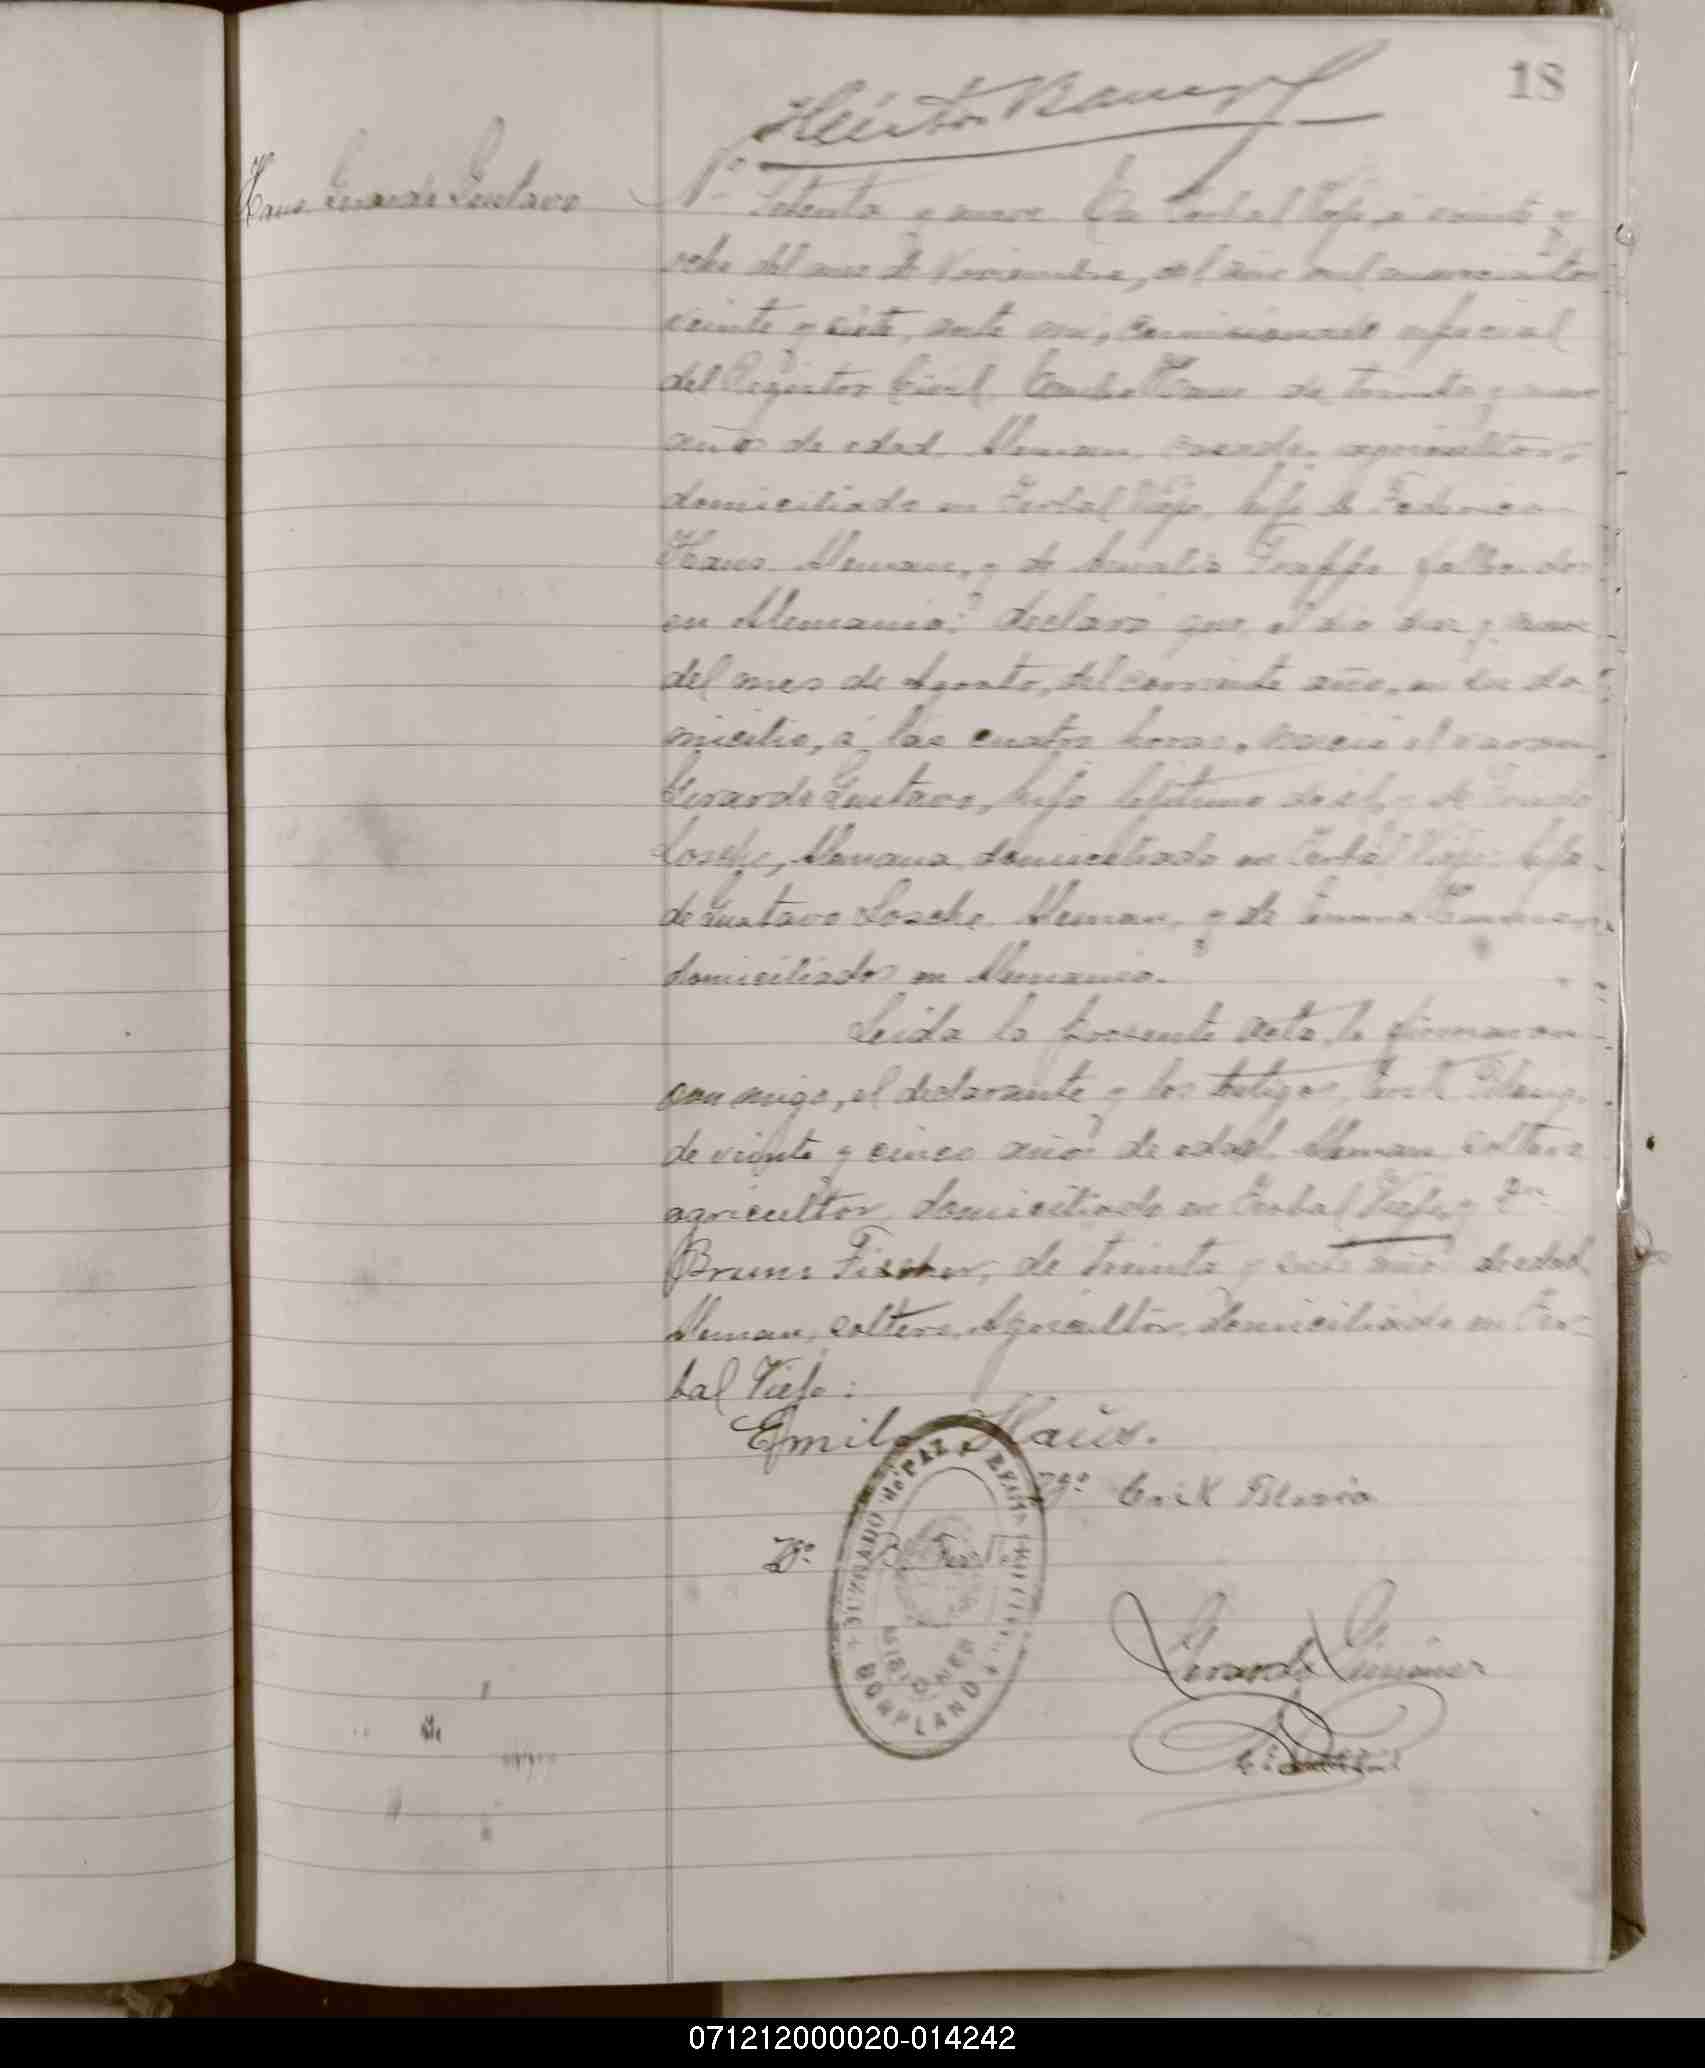 18
Héctor Barreyro
Haus Gerardo Gustavo
Nº Setenta y nueve En Cerbal Viejo, a veinte y
ocho del mes de Noviembre, del año mil novecientos
veinte y siete, ante mi, comisionado especial
del Registro Civil Emilio Haus de treinta y nueve
años de edad, Aleman, casado, agricultor,
domiciliado en Yerbal Viejo, hijo de Federico
Haus Aleman, y de Amalia Trappe fallecidos
en Alemania: declaró que el dia diez y nueve
del mes de Agosto, del corriente año, en su do
micilio, á las cuatro horas, nació el varon
Gerardo Gustavo, hijo lejitimo de el, y de
Losche, Alemana, domiciliada en Yerbal Viejo: hija
de Gustavo Losche Aleman, y de Emma
domiciliados en Alemania.
Leida la presente acta, la firmaron
con migo, el declarante y los testigos, Erik
de veinte y cinco años de edad, Aleman, soltero
agricultor, domiciliado en Yerbal Viejo, y Dn
Bruno Fischer, de treinta y seis años de edad
Aleman, soltero, Agricultor, domiciliado en Yer-
bal Viejo:
Emilio Haus.
Tgo. Erik
Tgo. B.
JUZGADO de PAZ y REGISTRO CIVIL
MISIONES
BONPLAND
Gerardo Gimenez
071212000020-014242